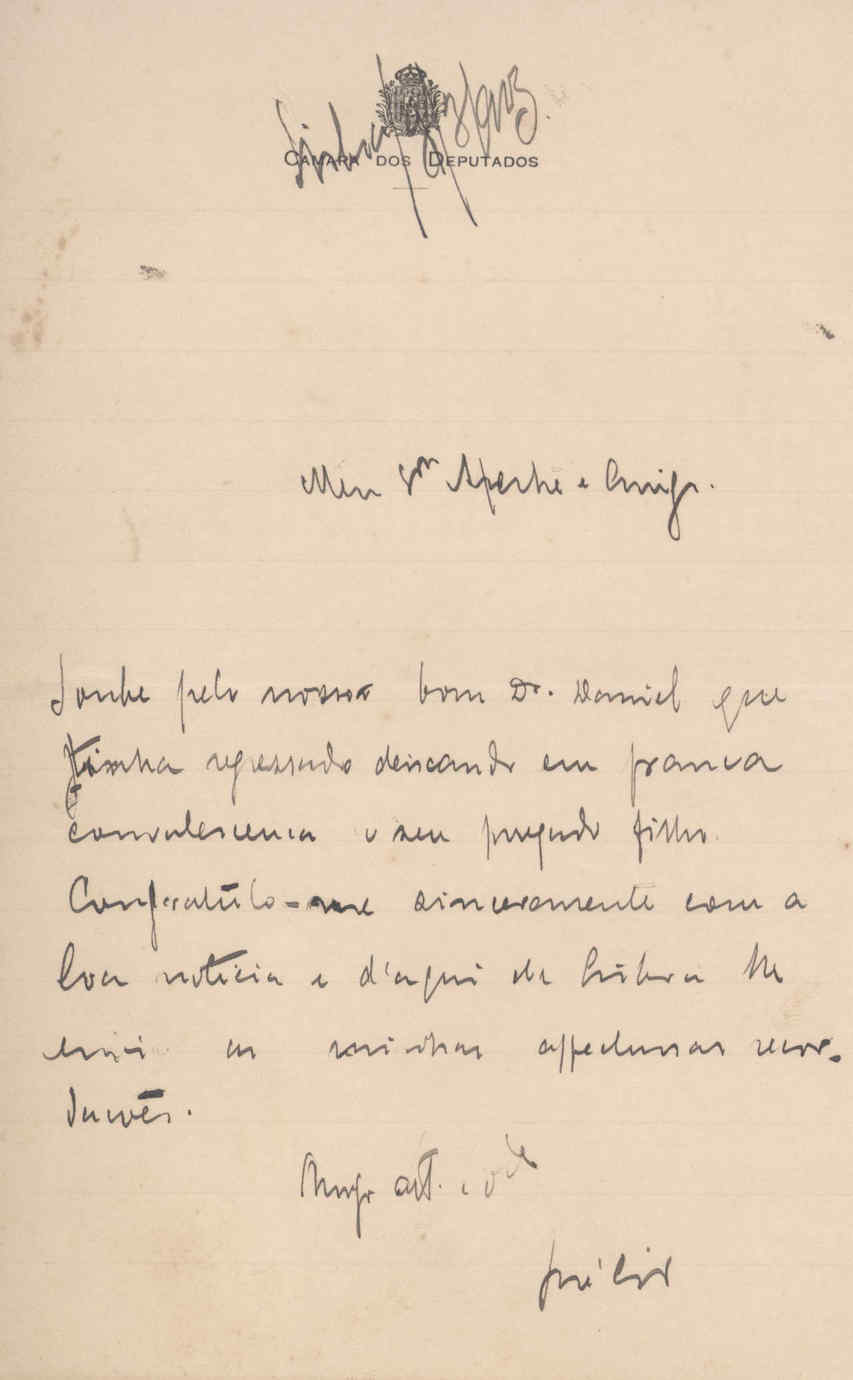 Lisboa
CAMARA DOS DEPUTADOS
Meu Amigo.
Soube pelo nosso bom Dr. Daniel que
tinha regressado deixando em franca
convalescencia o seu prezado filho.
Congratúlo-me sinceramente com a
boa noticia e d'aqui de Lisboa lhe
envio as minhas affectuosas recor-
dações.
Amigo att. e